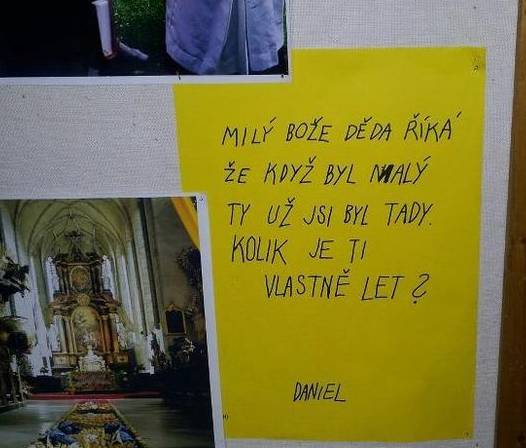 MILÝ BOŽE DĚDA ŘÍKÁ
ŽE KDYŽ BYL MALÝ
TY UŽ JSI BYL TADY.
KOLIK JE TI
VLASTNĚ LET ?
DANIEL